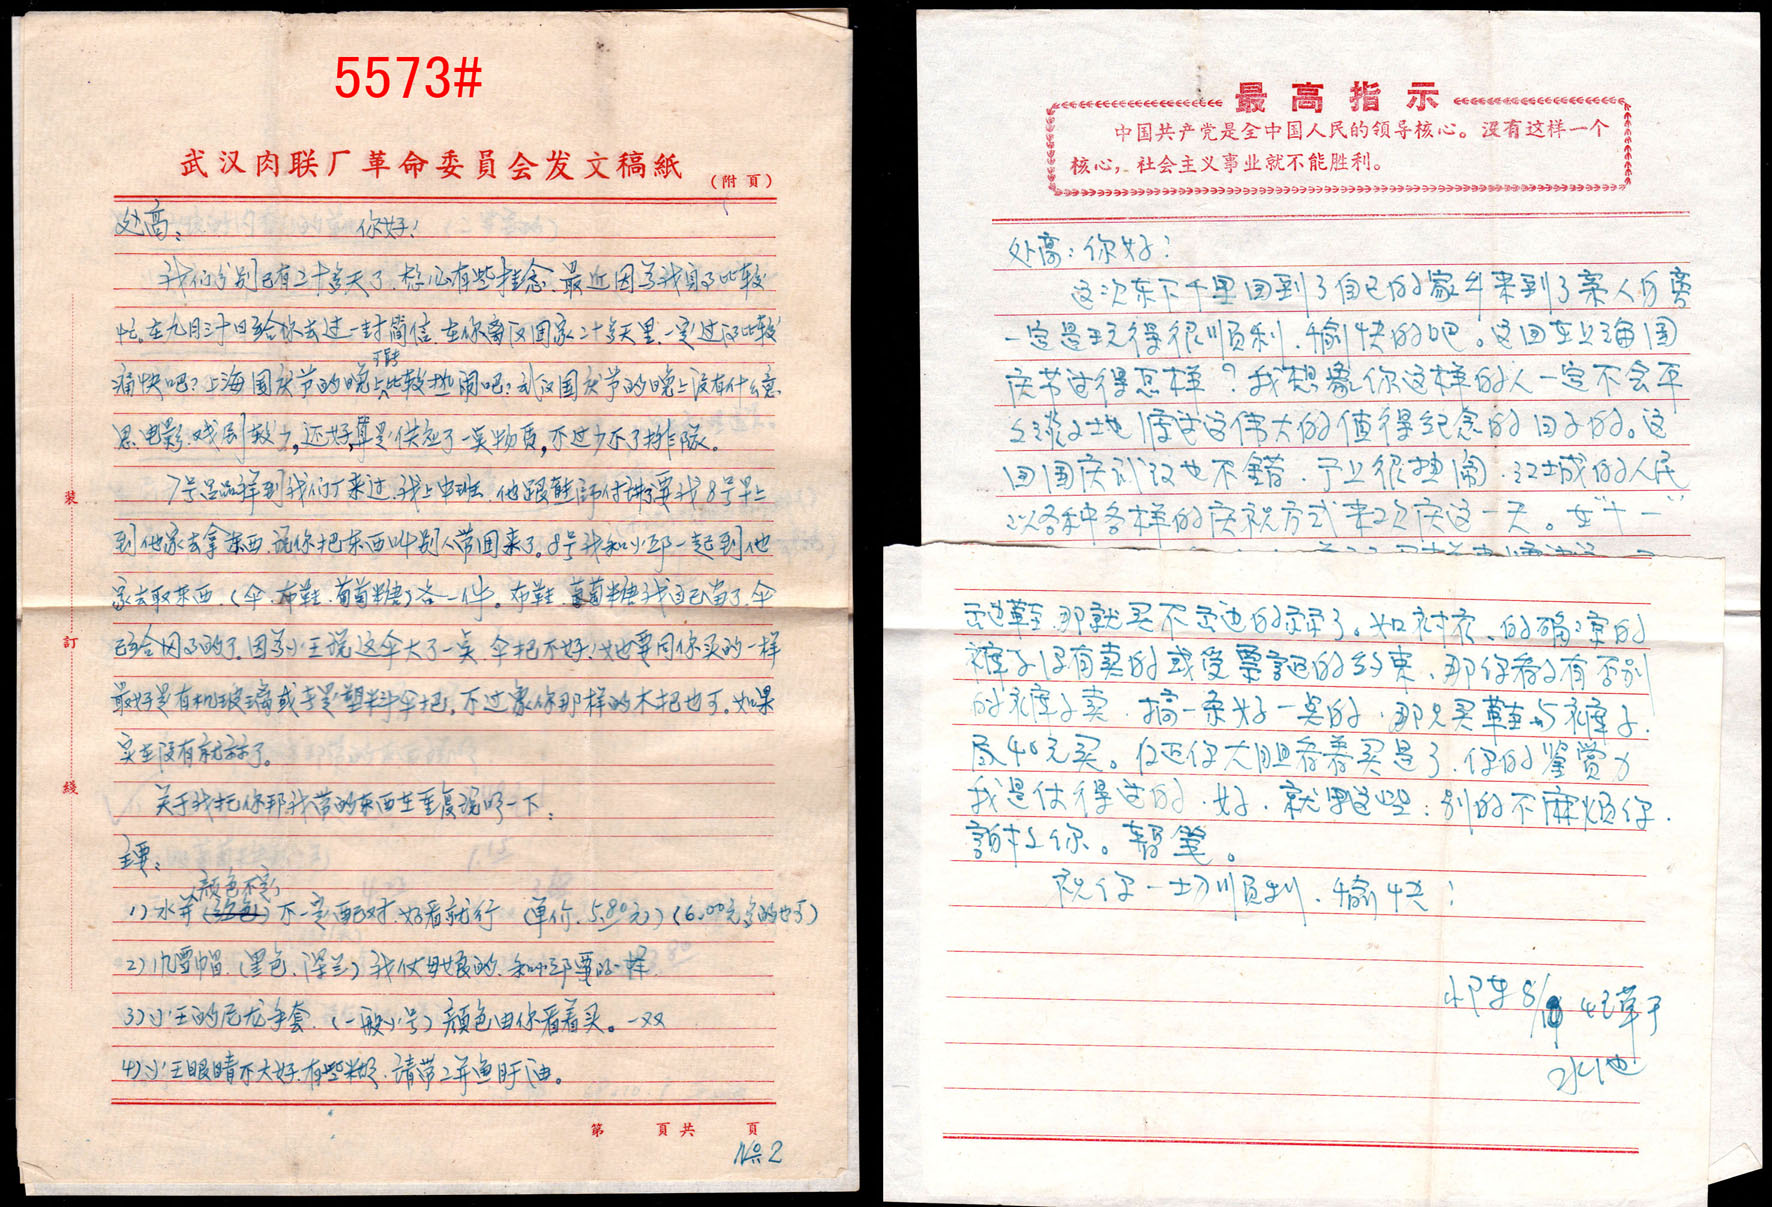 5573#
武汉肉联厂革命委員会发文稿紙 (附頁)
处高： 你好！
我们分别已有二十多天了，想必有些挂念，最近因为我自己比较
忙。在九月三十日给你去过一封简信，在你离汉回家二十多天里，一定过得比较
痛快吧？上海国庆节的晚上可能比较热闹吧？武汉国庆节的晚上没有什么意
思，电影、戏剧较少，还好，算是供应了一点物质，不过少不了排队。
7号 到我们厂来过，我上中班，他跟 师付讲了要我8号早上
到他家去拿东西，说你把东西叫别人带回来了。8号我和小邱一起到他
家去取东西，（伞、布鞋、葡萄糖）各一件。布鞋、葡萄糖我自己留了，伞
已给 了。因为小王说这伞大了一点，伞把不好，她要同你买的一样
最好是有机玻璃或者是塑料伞把，不过象你那样的木把也可。如果
实在没有就算了。
关于我把你帮我带的东西在重复说明一下：
主要：
(颜色不定)
1) 不一定配对，好看就行 (单价，5.80元) (6.00元多的也可)
2) 帽，(黑色、深兰) 我 的，和小邱要的一样
3) 小王的尼龙手套，(一般小号) 颜色由你看着买。一双
4) 小王眼睛不大好，有些糊，请带二并鱼肝油。
装
訂
綫
第 頁共 頁
No 2
最高指示
中国共产党是全中国人民的领导核心。没有这样一个
核心，社会主义事业就不能胜利。
处高：你好！
这次东下千里回到了自己的家乡来到了亲人方旁
一定是玩得很顺利、愉快的吧。这回在上海国
庆节过得怎样？我想象你这样的人一定不会平
平淡淡地度过这伟大的值得纪念的日子的。这
回国庆武汉也不错，厂上很热闹，江城的人民
以各种各样的庆祝方式来欢庆这一天。在“十一”
边鞋，那就买不 边的算了。如衬衣、的确凉的
裤子没有卖的或受票证的约束，那你看有否别
的裤子卖，搞一条好一点的，那只买鞋与裤子
尽40元买。反正你大胆看着买是了，你的鉴赏力
我是信得过的，好，就买这些，别的不麻烦你，
谢上你。暂笔。
祝你一切顺利、愉快！
邱 8/10 草于
水池